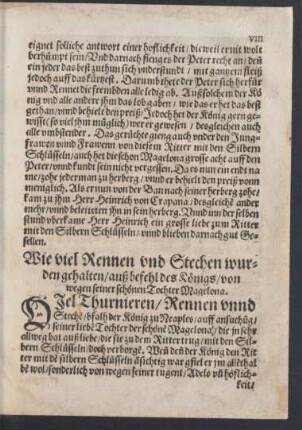 VIII
eignet solliche antwort einer hoflichkeit/ dieweil er nit wolt
berhümpt sein/ Vnd darnach fienges der Peter recht an/ deñ
ein jeder das best zuthun sich vnderstundt/ mit gantzem fleiß
jedoch auff das kürtzest. Darumb thete der Peter sich herfür
vnnd Rennet die frembden alle ledig ab. Auß solchem der Kö
nig vnd alle andere jhm das lob gaben/ wie das er het das best
gethan/ vnnd behielt den preiß/ Jedoch het der König gern ge-
wisst (so viel jhm müglich) wer er gewesen/ desgleichen auch
alle vmbstender. Das gerüchte gieng auch vnder den Jung-
frawen vnnd Frawenn von diesem Ritter mit den Silbern
Schlüsseln/ auch het die schon Magelona grosse acht auff den
Peter/ vnnd kundt sein nicht vergessen. Da es nun ein end na
me/ zohe jederman zu herberg/ vnnd er behielt den preiß vonn
menniglich. Als er nun von der Ban nach seiner herberg zohe/
kam zu jhm Herr Heinrich von Crapana/ desgleichē ander
mehr/ vnnd beleiteten jhn in sein herberg. Vnnd vnn der selben
stund vberkame Herr Heinrich ein grosse liebe zum Ritter
mit den Silbern Schlüsseln/ vnnd blieben darnach gut Ge-
sellen.
Wie viel Rennen vnd Stechen wur-
den gehalten/ auß befehl des Königs/ von
wegen seiner schönen Tochter Magelona.
Viel Thurnieren/ Rennen vnnd
Stechē/ bfalh der König zu Neaples/ auff ansuchūg/
seiner liebē Tochter der schönē Magelona/ die jn sehr
allweg bat auß liebe/ die sie zu dem Ritter trug/ mit den Sil-
bern Schlüsseln/ doch verborgē. Weil deñ der König den Rit
ter mit dē silbern Schlüsseln āsichtig war/ gfiel er jm allēthal
bē wol/ sonderlich von wegen seiner tugent/ Adels vñ höflich-
keit/